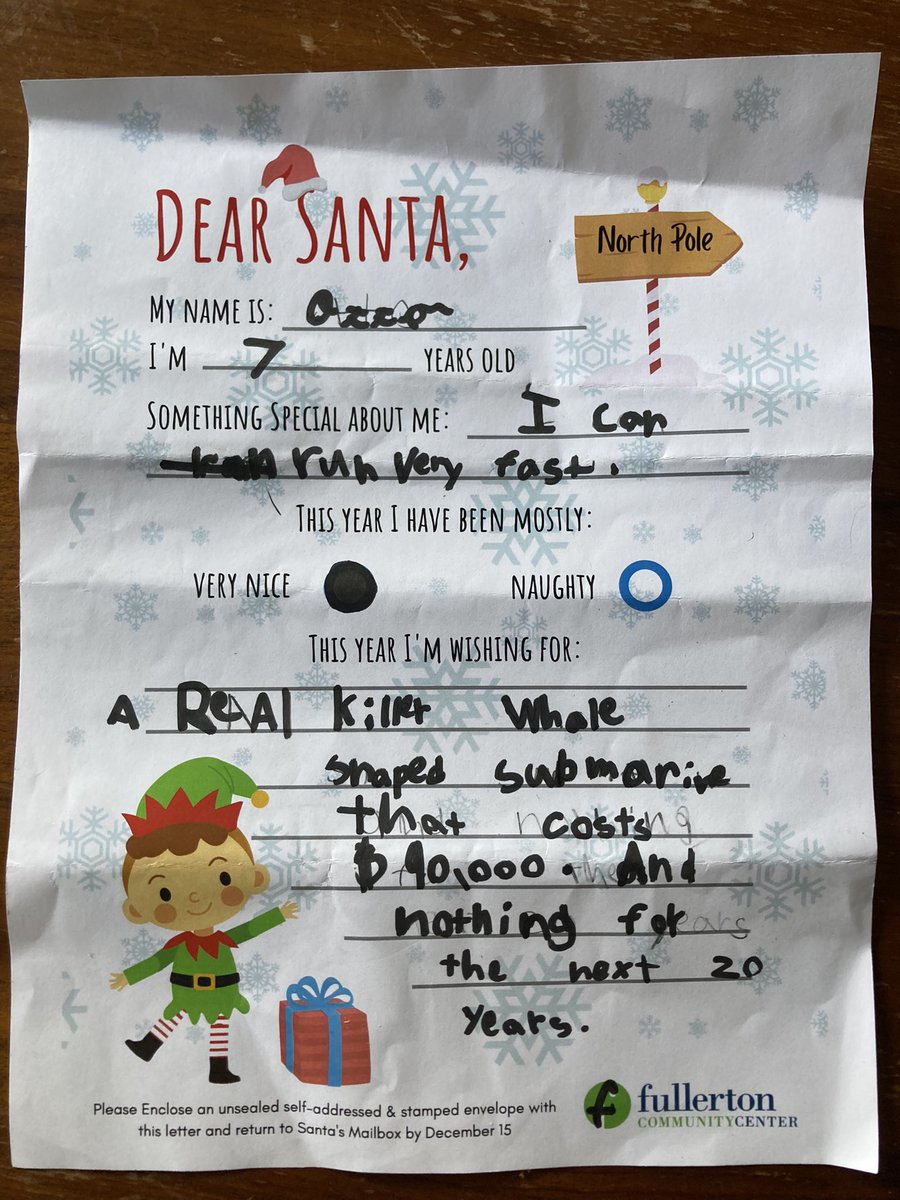 DEAR SANTA,
North Pole
MY NAME IS:
I'M 7 YEARS OLD
SOMETHING SPECIAL ABOUT ME: I can
run very fast.
THIS YEAR I HAVE BEEN MOSTLY:
VERY NICE NAUGHTY
THIS YEAR I'M WISHING FOR:
A ReAl killer whale
shaped submarine
that costs
$90,000. And
nothing for
the next 20
years.
Please Enclose an unsealed self-addressed & stamped envelope with
this letter and return to Santa's Mailbox by December 15
f fullerton
COMMUNITYCENTER